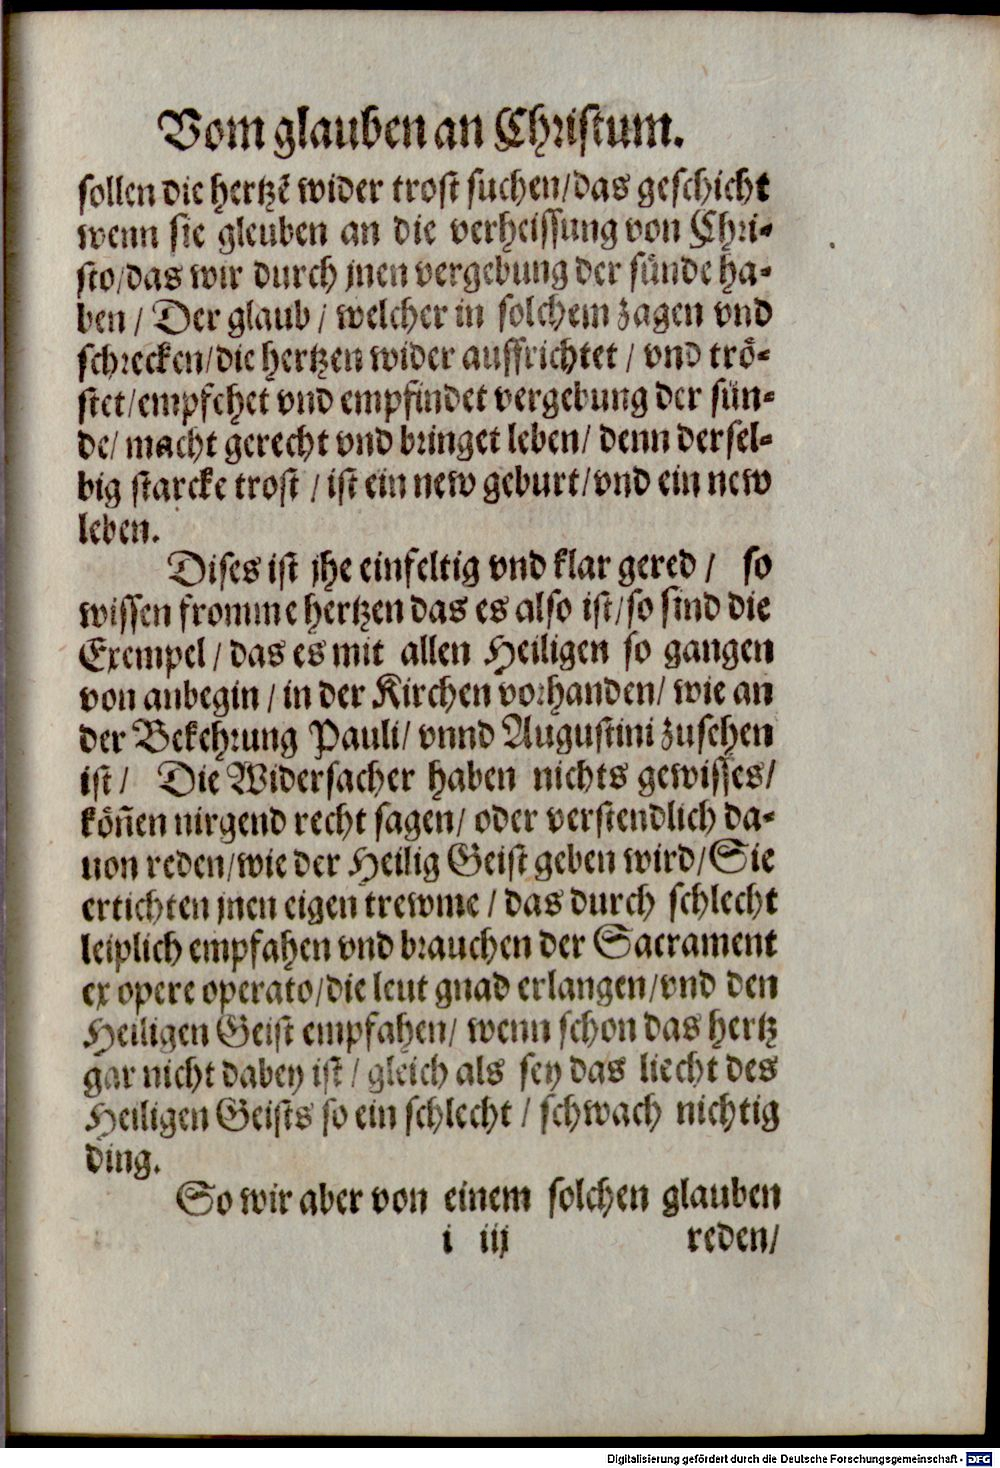 Vom glauben an Christum.
sollen die hertzẽ wider trost suchen/das geschicht
wenn sie gleuben an die verheissung von Chri-
sto/das wir durch jnen vergebung der sünde ha-
ben / Der glaub / welcher in solchem zagen vnd
schrecken/die hertzen wider auffrichtet / vnd trö-
stet/empfehet vnd empfindet vergebung der sün-
de/ macht gerecht vnd bringet leben/ denn dersel-
big starcke trost / ist ein new geburt/vnd ein new
leben.
Dises ist jhe einfeltig vnd klar gered / so
wissen fromme hertzen das es also ist/so sind die
Exempel / das es mit allen Heiligen so gangen
von anbegin / in der Kirchen vorhanden/ wie an
der Bekehrung Pauli/ vnnd Augustini zusehen
ist / Die Widersacher haben nichts gewisses/
köñen nirgend recht sagen/ oder verstendlich da-
uon reden/wie der Heilig Geist geben wird/Sie
ertichten jnen eigen trewme / das durch schlecht
leiplich empfahen vnd brauchen der Sacrament
ex opere operato/die leut gnad erlangen/vnd den
Heiligen Geist empfahen/ wenn schon das hertz
gar nicht dabey ist / gleich als sey das liecht des
Heiligen Geists so ein schlecht / schwach nichtig
ding.
So wir aber von einem solchen glauben
i iij reden/
Digitalisierung gefördert durch die Deutsche Forschungsgemeinschaft - DFG